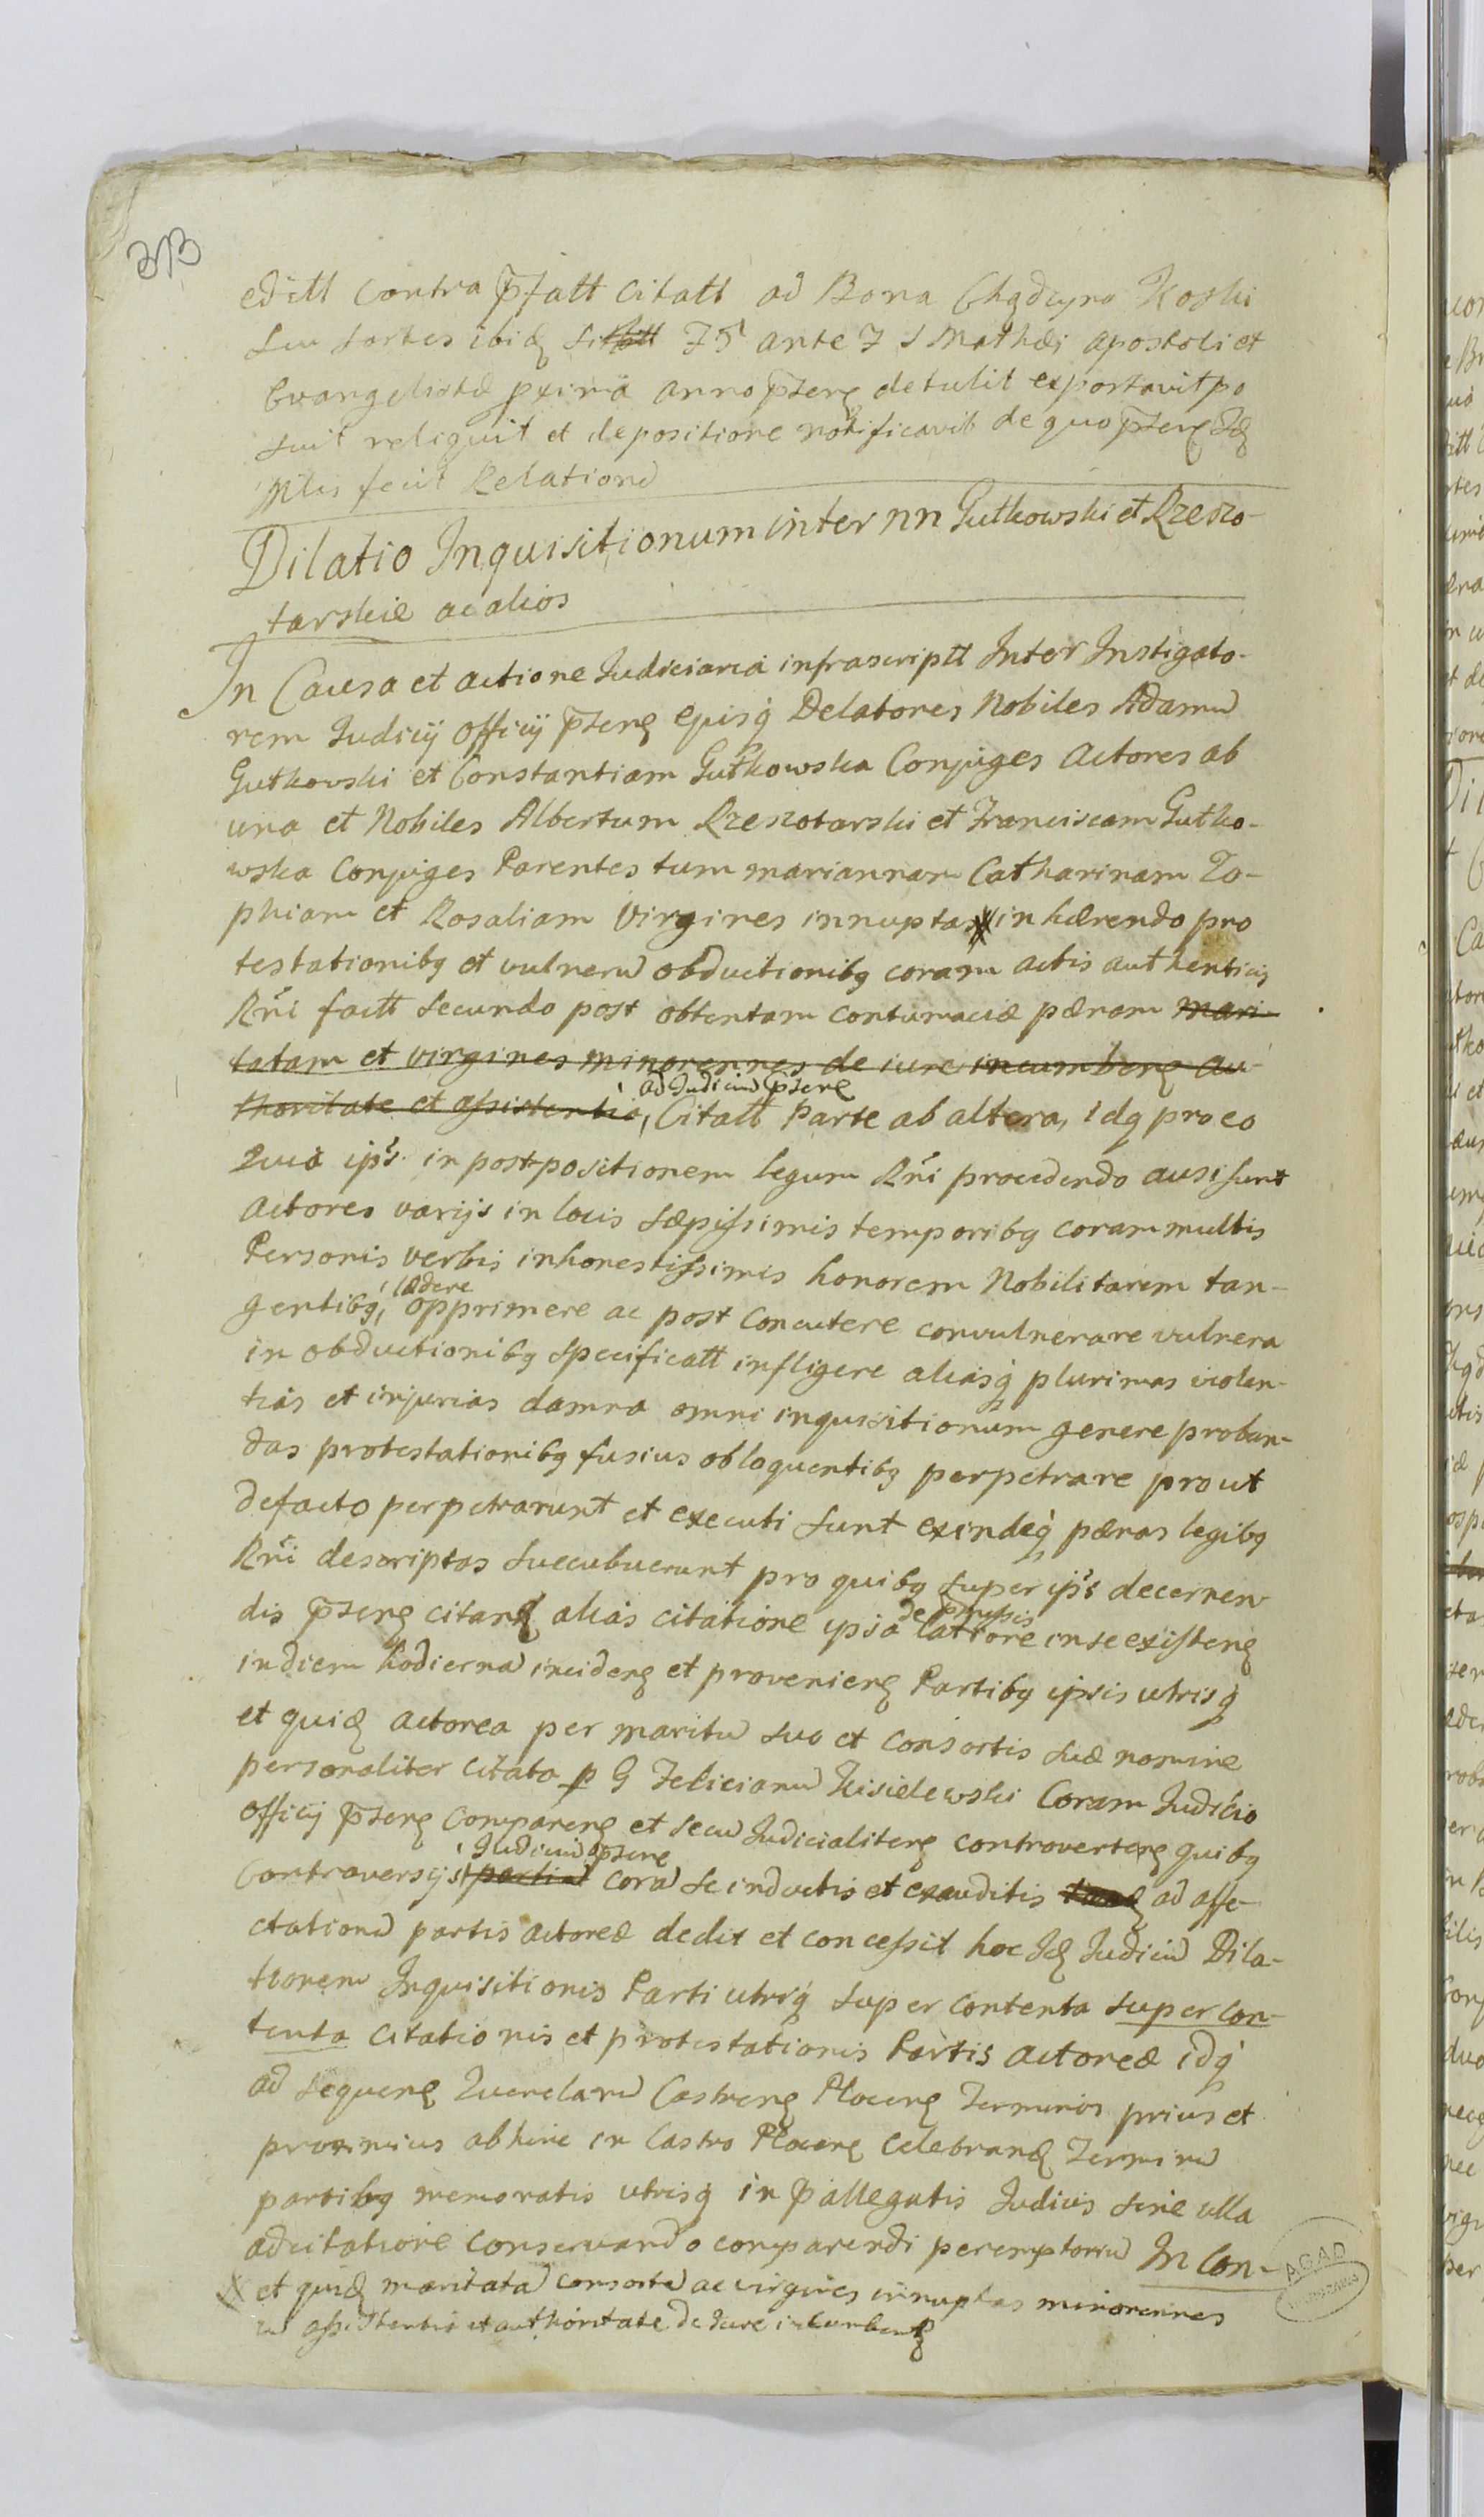 313
editt Contra p̃fatt Citatt ad Bona Chądzyno Koski
seu sortes ibidę 75 ante F S Mathæi apostoli et
Evangelistæ pximã anno p̃senę detulit exportavit po
suit reliquit et depositione notificavit de quo p̃senę Idę
fecit Relationē
Dilatio Inquisitionum inter nn Gutkowski et Rzeszo-
tarskie ac alios
In Causa et actione Judiciaria infrascriptt Inter Instigato-
rem Judicij Officij p̃senę eiusq̨ Delatores Nobiles Adamū
Gutkowski et Constantiam Gutkowska Conjuges Actores ab
una et Nobiles Albertum Rzeszotarski et Franciscam Gutko-
wska Conjuges Parentes tum mariannam Catharinam Zo-
phiam et Rosaliam Virgines innuptas inhærendo pro
testationibq et vulnerū obductionibq coram actis authenticis
Rñi factt secundo post obtentam contumaciæ pænam mari-
tatam et virgines minorennes de iure incumbenę au-
thoritate et assistentia, ad Judiciū p̃senę Citatt Parte ab altera, idq pro eo
Quia ipsi in postpositionem legum Rñi procedendo ausi sunt
Actores varijs in locis sæpissimis temporibq coram multis
Personis verbis inhonestissimis honorem Nobilitarem tan-
gentibq, lædere opprimere ac post Concutere convulnerare vulnera
in obductionibq specificatt infligere aliasq̨ plurimas violen-
tias et injurias damna omni inquisitionum genere proban-
das protestationibq fusius obloquentibq perpetrare prout
defacto perpetrarunt et executi sunt exindeq̨ pænas legibq
Rñi descriptas succubuerunt pro quibq super ipsis decernen-
dis p̃senę citanę alias citatione ipsa de p̃missis latiore in se existenę
in diem hodiernā incidenę et provenienę Partibq ipsis utrisq̨
et quidę Actorea per maritū suo et Consortis suæ nomine
personaliter Citata p G Felicianū Kisielewski Coram Judicio
Officij p̃senę Comparenę et secū Judicialiterę controvertenę quibq
Controversijs Judiciū p̃senę partiū corā se inductis et exauditis ad affe-
ctationē partis actoreæ dedit et concessit hoc Idę Judiciū Dila-
tionem Inquisitionis Parti utriq̨ super contenta super con-
tenta Citationis et protestationis Partis actoreæ idq̨
ad sequenę Querelarū Castrenę Plocenę Terminos prius et
proximius abhinc in Castro Plocenę Celebrandę Terminū
partibq memoratis utrisq̨ in p̃allegatis Judicijs sine ulla
adcitatione conservando comparendi peremptoriū In Con-
et quidę maritatā consortē ac virgines innuptas minorennes
in assistentia et authoritate de Jure incumbentę
AGAD